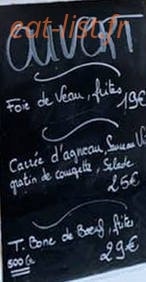 eat-list.fr
OUVERT
Foie de Veau, frites
19€
Carrée d'agneau,
gratin de courgette, Salade
25€
T. Bone de Boeuf, frites
500 Gr
29€